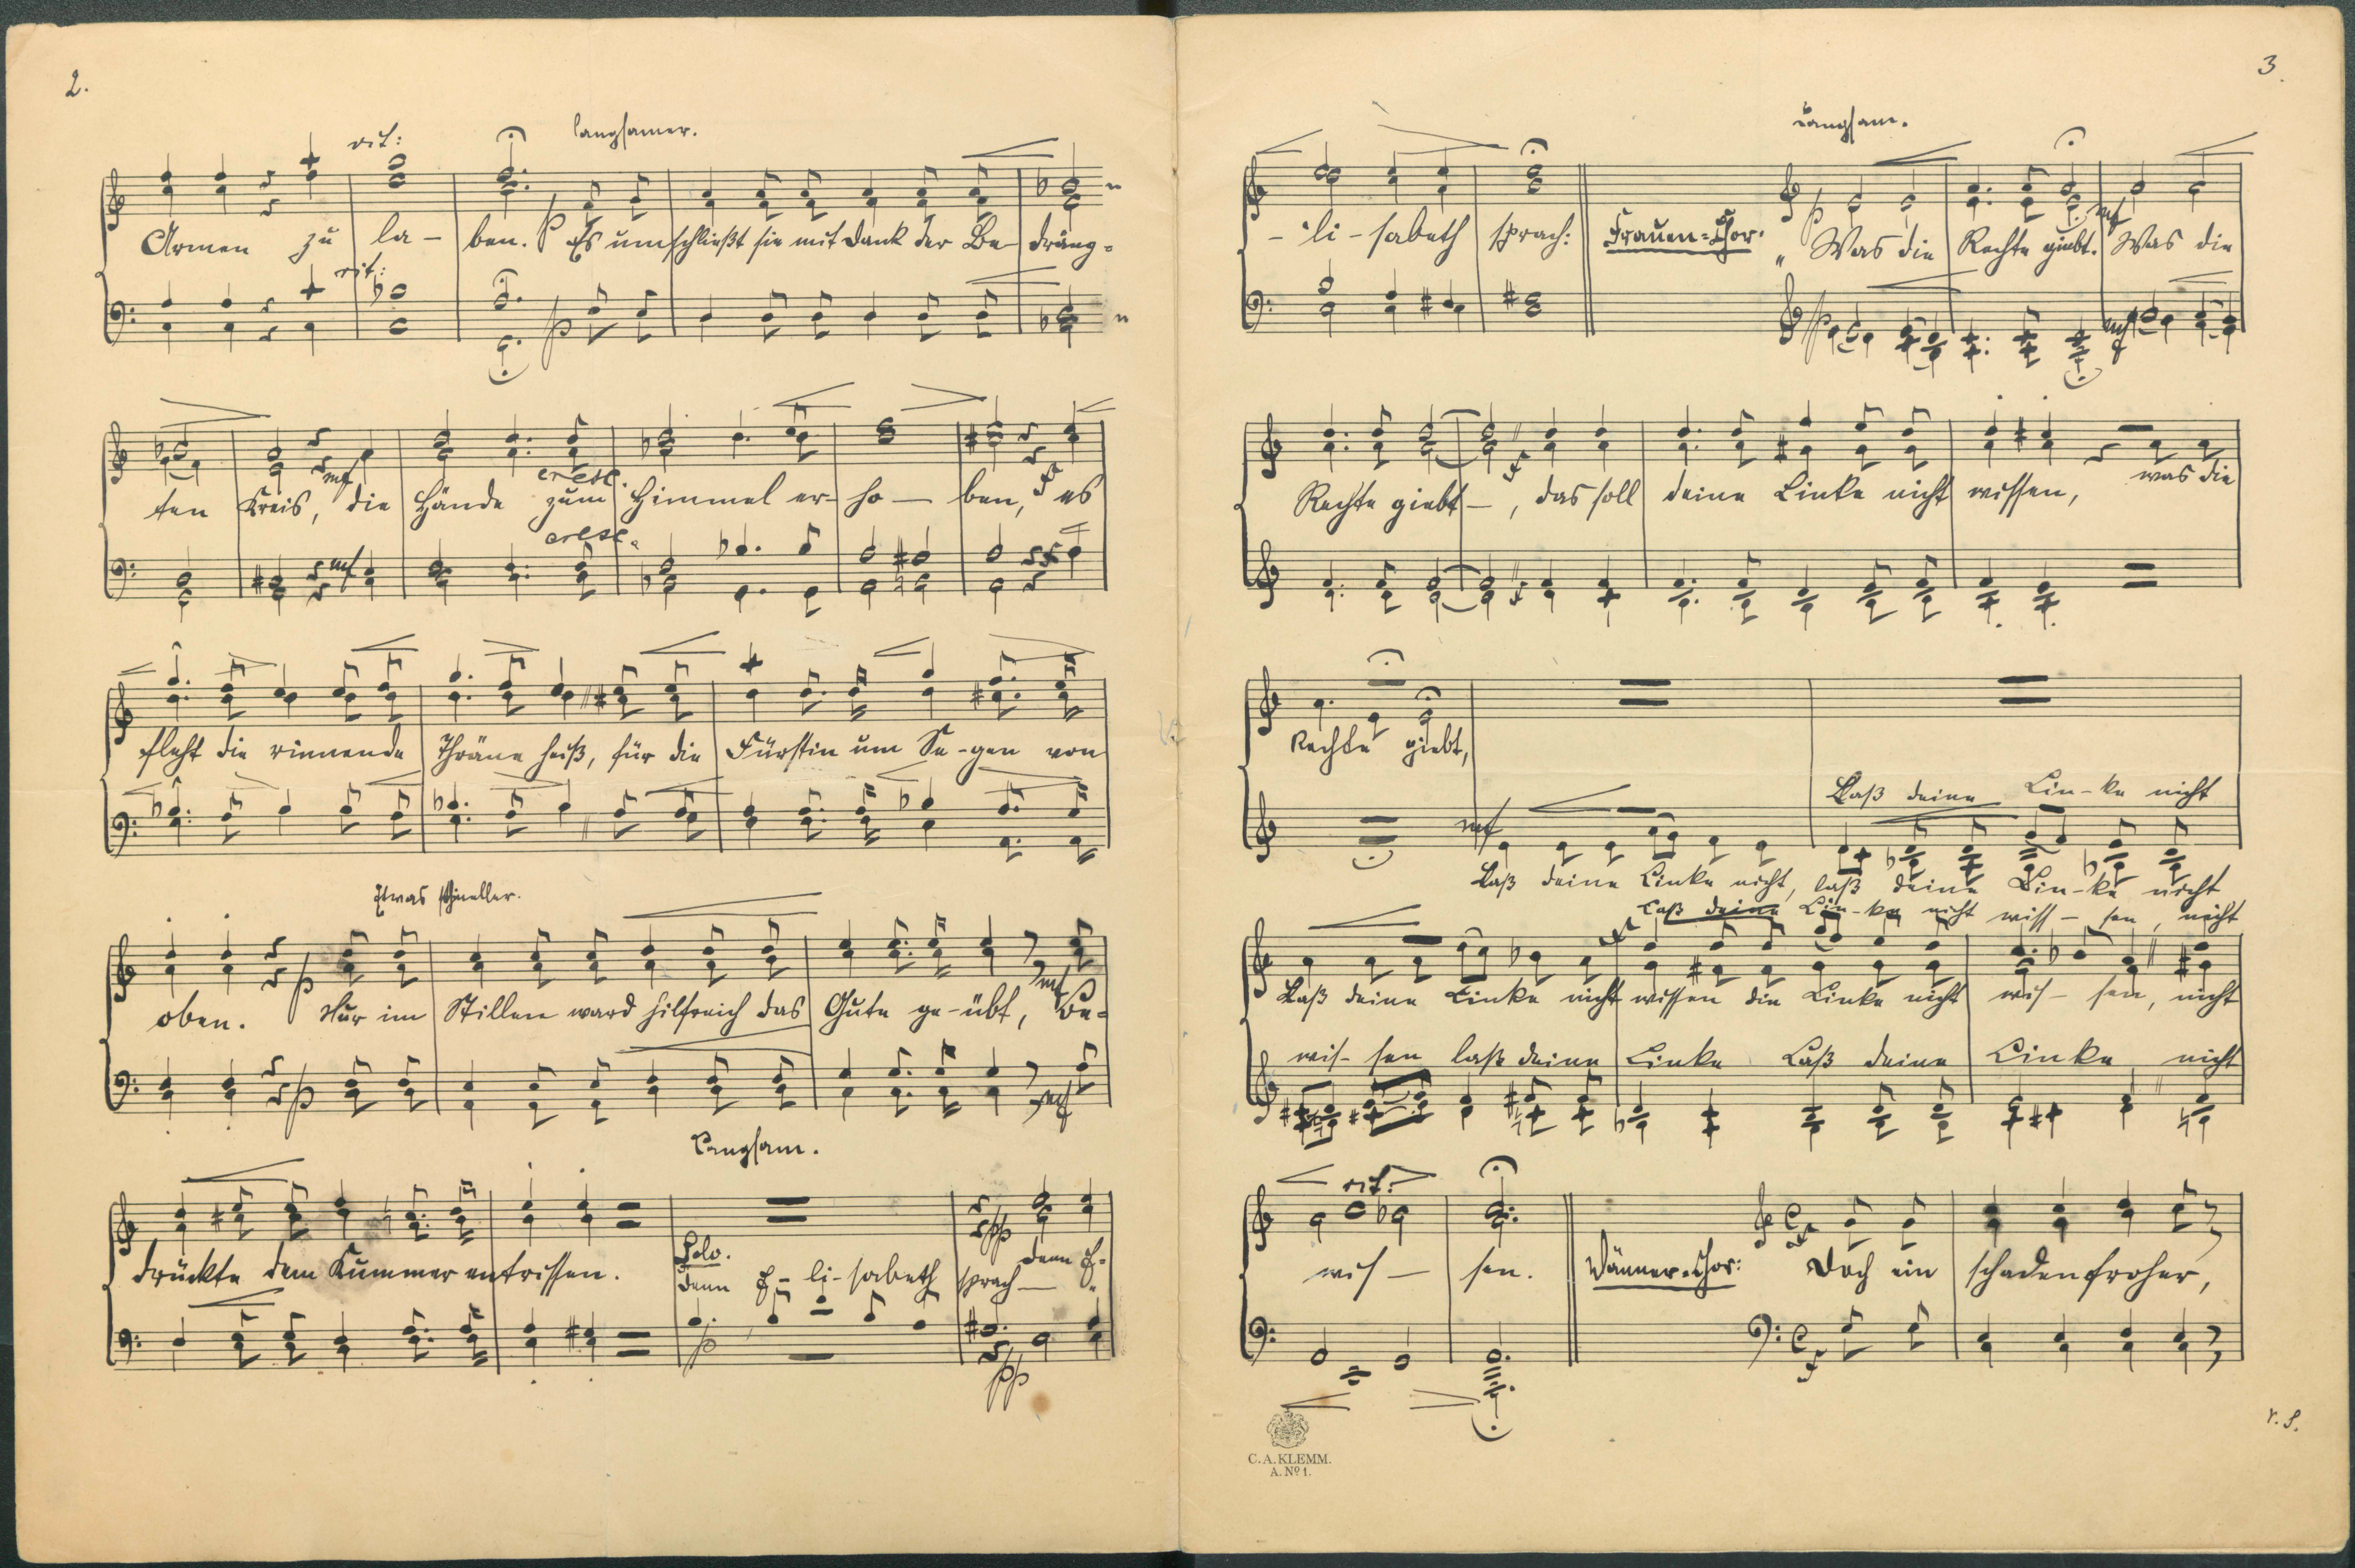 2.
rit: langsamer.
Armen zu la - ben. p Es umschließt sie mit Dank der Be- dräng-
rit: p
ten Kreis, mf die Hände cresc. zum Himmel er- ho — ben, f es
mf cresc. f
fleht die rinnende Thräne heiß, für die Fürstin um Se-gen von
Etwas schneller.
oben. p Nur im Stillen ward hilfreich das Gute ge-übt, mf Be-
p mf
Langsam.
drückte dem Kummer entrissen. Solo. Denn E- li-sabeth sprach — pp denn E-
p pp
3.
Langsam.
- li - sabeth sprach: Frauen=Chor. p „Was die Rechte giebt. mf Was die
p mf
Rechte giebt —, f das soll deine Linke nicht wissen, was die
f
Rechte giebt,
Laß deine Lin-ke nicht
mf
Laß deine Linke nicht, laß deine Lin-ke nicht
Laß deine Lin-ke nicht wiss - sen, nicht
f
Laß deine Linke nicht wissen die Linke nicht wis - sen, nicht
wis- sen laß deine Linke Laß deine Linke nicht
rit.
wis — sen. Männer=Chor: f Doch ein schadenfroher,
f
C. A. KLEMM.
A. Nº 1.
v. S.